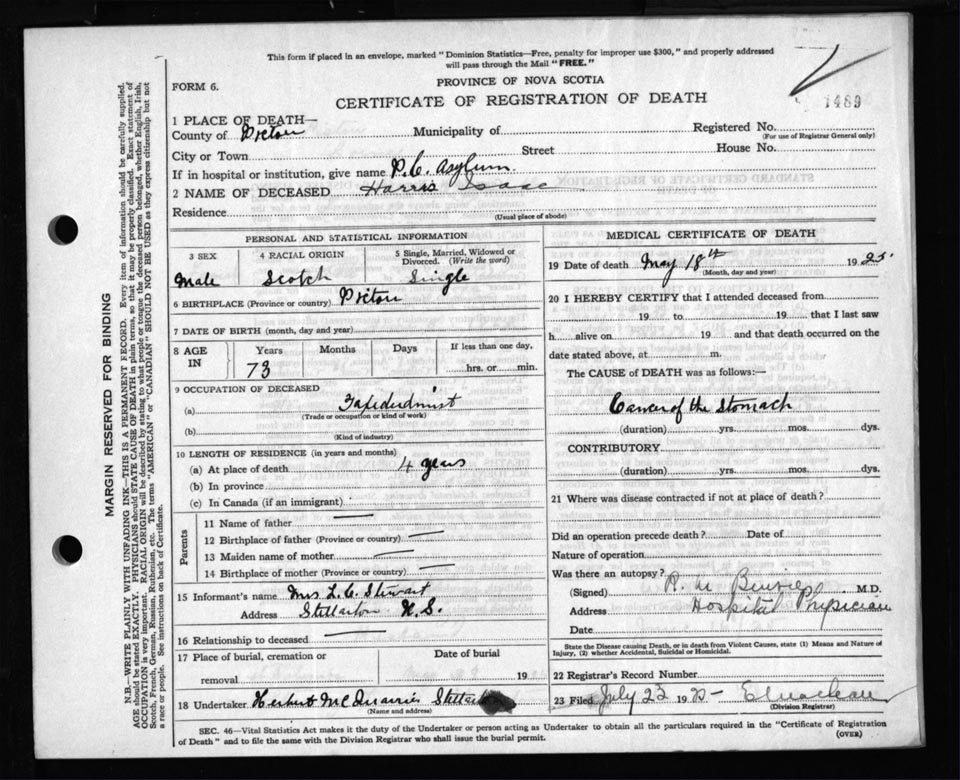 This form if placed in an envelope, marked "Dominion Statistics—Free, penalty for improper use $300," and properly addressed
will pass through the Mail "FREE."
FORM 6.
PROVINCE OF NOVA SCOTIA
CERTIFICATE OF REGISTRATION OF DEATH
1489
1 PLACE OF DEATH—
County of Pictou Municipality of Registered No.
(For use of Registrar General only)
City or Town Street House No.
If in hospital or institution, give name P.C. Asylum.
2 NAME OF DECEASED Harris Isaac
Residence
(Usual place of abode)
PERSONAL AND STATISTICAL INFORMATION
3 SEX 4 RACIAL ORIGIN 5 Single, Married, Widowed or Divorced. (Write the word)
Male Scotch Single
6 BIRTHPLACE (Province or country) Pictou
7 DATE OF BIRTH (month, day and year)
8 AGE IN Years Months Days If less than one day,
73 hrs. or min.
9 OCCUPATION OF DECEASED
(a)
(Trade or occupation or kind of work)
(b)
(Kind of industry)
10 LENGTH OF RESIDENCE (in years and months)
(a) At place of death 4 years
(b) In province
(c) In Canada (if an immigrant)
Parents
11 Name of father
12 Birthplace of father (Province or country)
13 Maiden name of mother
14 Birthplace of mother (Province or country)
15 Informant's name Mrs L. C. Stewart
Address Stellarton N.S.
16 Relationship to deceased
17 Place of burial, cremation or removal Date of burial
19
18 Undertaker Herbert McQuarrie
(Name and address)
MEDICAL CERTIFICATE OF DEATH
19 Date of death May 18th 1925
(Month, day and year)
20 I HEREBY CERTIFY that I attended deceased from
19 to 19 that I last saw
h alive on 19 and that death occurred on the
date stated above, at m.
The CAUSE of DEATH was as follows:—
Cancer of the Stomach
(duration) yrs. mos. dys.
CONTRIBUTORY
(duration) yrs. mos. dys.
21 Where was disease contracted if not at place of death?
Did an operation precede death? Date of
Nature of operation
Was there an autopsy?
(Signed) M.D.
Address Hospital Physician
Date
State the Disease causing Death, or in death from Violent Causes, state (1) Means and Nature of
Injury, (2) whether Accidental, Suicidal or Homicidal.
22 Registrar's Record Number
23 Filed July 22 1925
(Division Registrar)
SEC. 46—Vital Statistics Act makes it the duty of the Undertaker or person acting as Undertaker to obtain all the particulars required in the "Certificate of Registration
of Death" and to file the same with the Division Registrar who shall issue the burial permit.
(OVER)
MARGIN RESERVED FOR BINDING
N.B.—WRITE PLAINLY WITH UNFADING INK—THIS IS A PERMANENT RECORD. Every item of information should be carefully supplied.
AGE should be stated EXACTLY. PHYSICIANS should STATE CAUSE OF DEATH in plain terms, so that it may be properly classified. Exact statement of
OCCUPATION is very important. RACIAL ORIGIN will be described by stating to what people or tongue the deceased person belonged, whether English, Irish,
Scotch, French, German, Russian, Ruthenian, etc. The terms "AMERICAN" or "CANADIAN" SHOULD NOT BE USED as they express citizenship but not
a race or people. See instructions on back of Certificate.